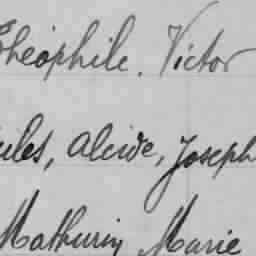 Théophile. Victor
Jules, Alcide, Joseph
Mathurin Marie